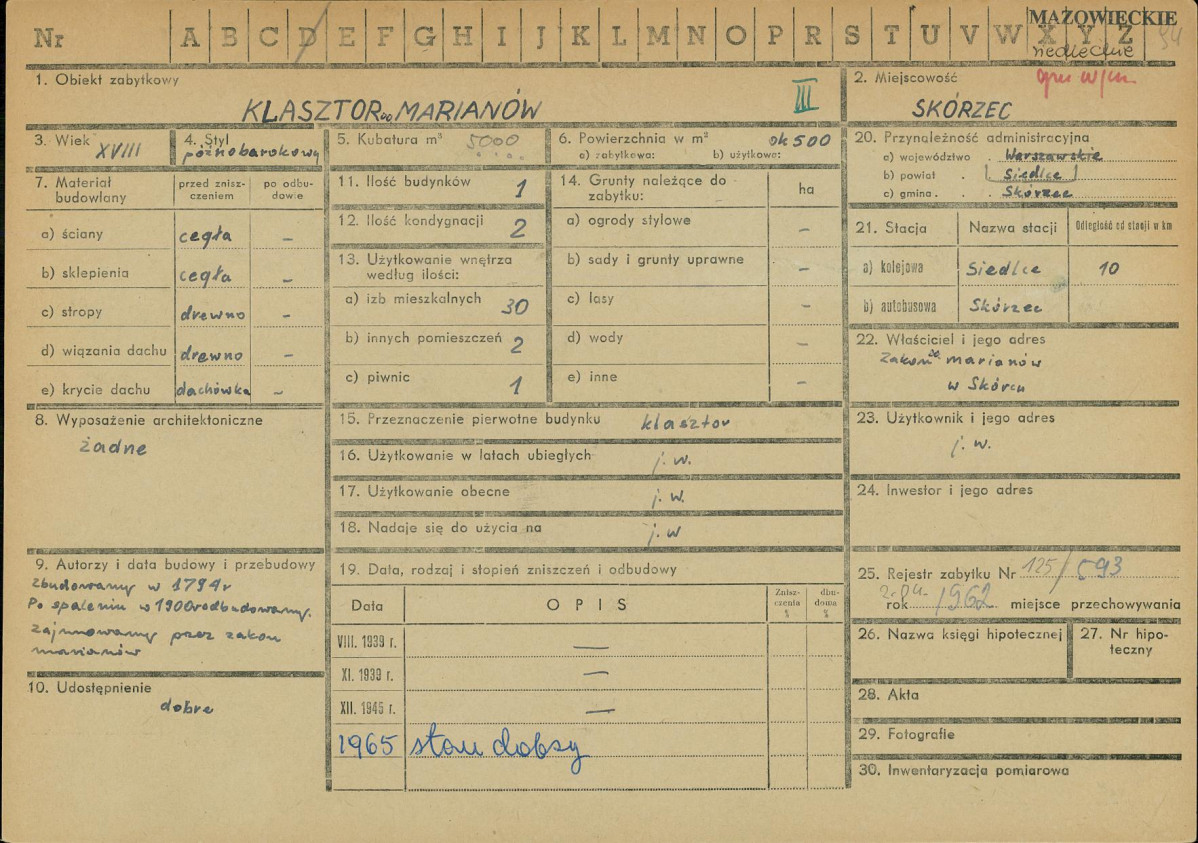 Nr A B C D E F G H I J K L M N O P R S T U V W X Y Z
MAZOWIECKIE
siedleckie
94
1. Obiekt zabytkowy
KLASZTOR oo MARIANÓW
III
2. Miejscowość
SKÓRZEC
3. Wiek XVIII
4. Styl późnobarokowy
5. Kubatura m³ 5000
6. Powierzchnia w m² ok 500
a) zabytkowa: b) użytkowa:
20. Przynależność administracyjna
a) województwo . Warszawskie
b) powiat . Siedlce
c) gmina . . Skórzec
7. Materiał budowlany
przed zniszczeniem
po odbudowie
a) ściany cegła –
b) sklepienia cegła –
c) stropy drewno –
d) wiązania dachu drewno –
e) krycie dachu dachówka –
11. Ilość budynków 1
12. Ilość kondygnacji 2
13. Użytkowanie wnętrza
według ilości:
a) izb mieszkalnych 30
b) innych pomieszczeń 2
c) piwnic 1
14. Grunty należące do
zabytku:
ha
a) ogrody stylowe –
b) sady i grunty uprawne –
c) lasy –
d) wody –
e) inne –
21. Stacja Nazwa stacji Odległość od stacji w km
a) kolejowa Siedlce 10
b) autobusowa Skórzec
22. Właściciel i jego adres
Zakon oo. marianów
w Skórcu
8. Wyposażenie architektoniczne
żadne
15. Przeznaczenie pierwotne budynku klasztor
16. Użytkowanie w latach ubiegłych j. w.
17. Użytkowanie obecne j. w.
18. Nadaje się do użycia na j. w
23. Użytkownik i jego adres
j. w.
24. Inwestor i jego adres
9. Autorzy i data budowy i przebudowy
Zbudowany w 1794 r
Po spaleniu w 1900 r odbudowany.
Zajmowany przez zakon
marianów
10. Udostępnienie
dobre
19. Data, rodzaj i stopień zniszczeń i odbudowy
Data OPIS Zniszczenia % dbudowa %
VIII. 1939 r. —
XI. 1939 r. —
XII. 1945 r. —
1965 stan dobry
25. Rejestr zabytku Nr 125/593
2.04.
rok 1962 miejsce przechowywania
26. Nazwa księgi hipotecznej
27. Nr hipoteczny
28. Akta
29. Fotografie
30. Inwentaryzacja pomiarowa